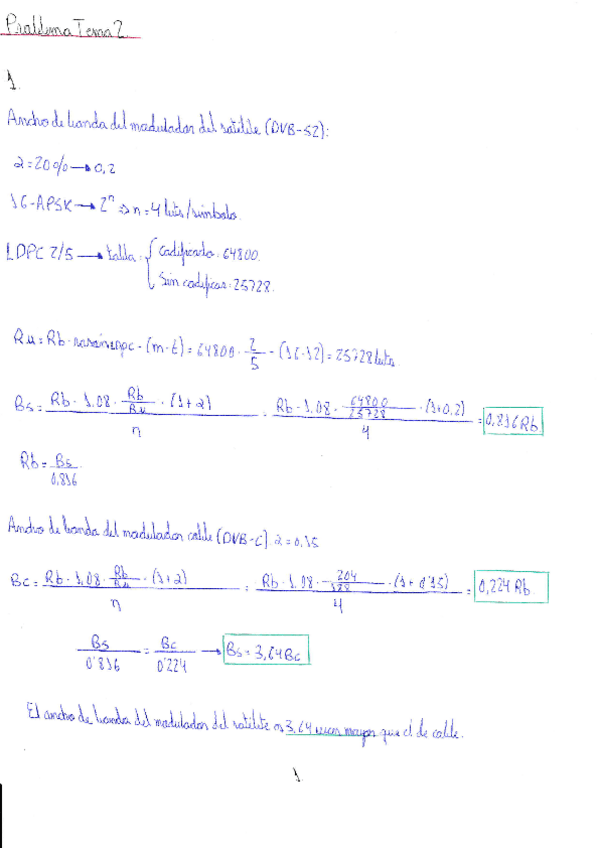 Problema Tema 2.
1.
Ancho de banda del modulador del satélite (DVB-S2):
α = 20% → 0,2
16-APSK → 2^n ⇒ n = 4 bits/símbolo.
LDPC 2/5 → tabla: { Codificado: 64800.
Sin codificar: 25728.
Ru = Rb · · (m·t) = 64800 · 2/5 - (16·12) = 25728 bits
Bs = (Rb · 1.08 · Rb/Ru · (1+α)) / n = (Rb · 1.08 · 64800/25728 · (1+0,2)) / 4 = 0,816 Rb
Rb = Bs / 0,816
Ancho de banda del modulador cable (DVB-C) α = 0,15
Bc = (Rb · 1.08 · Rb/Ru · (1+α)) / n = (Rb · 1.08 · 204/188 · (1+0'15)) / 4 = 0,224 Rb
Bs / 0'816 = Bc / 0'224 → Bs = 3,64 Bc
El ancho de banda del modulador del satélite es 3,64 veces mayor que el de cable.
1